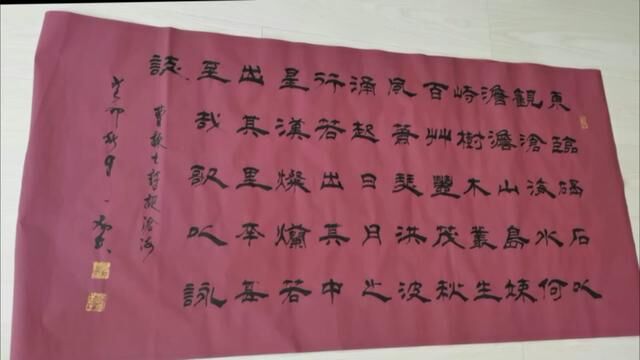 東臨碣石以
觀滄海水何
澹澹山島竦
峙樹木叢生
百艸豐茂秋
風蕭瑟洪波
涌起日月之
行若出其中
星漢燦爛若
出其里幸甚
至哉歌以詠
誌
曹操之詩觀滄海
癸卯秋月